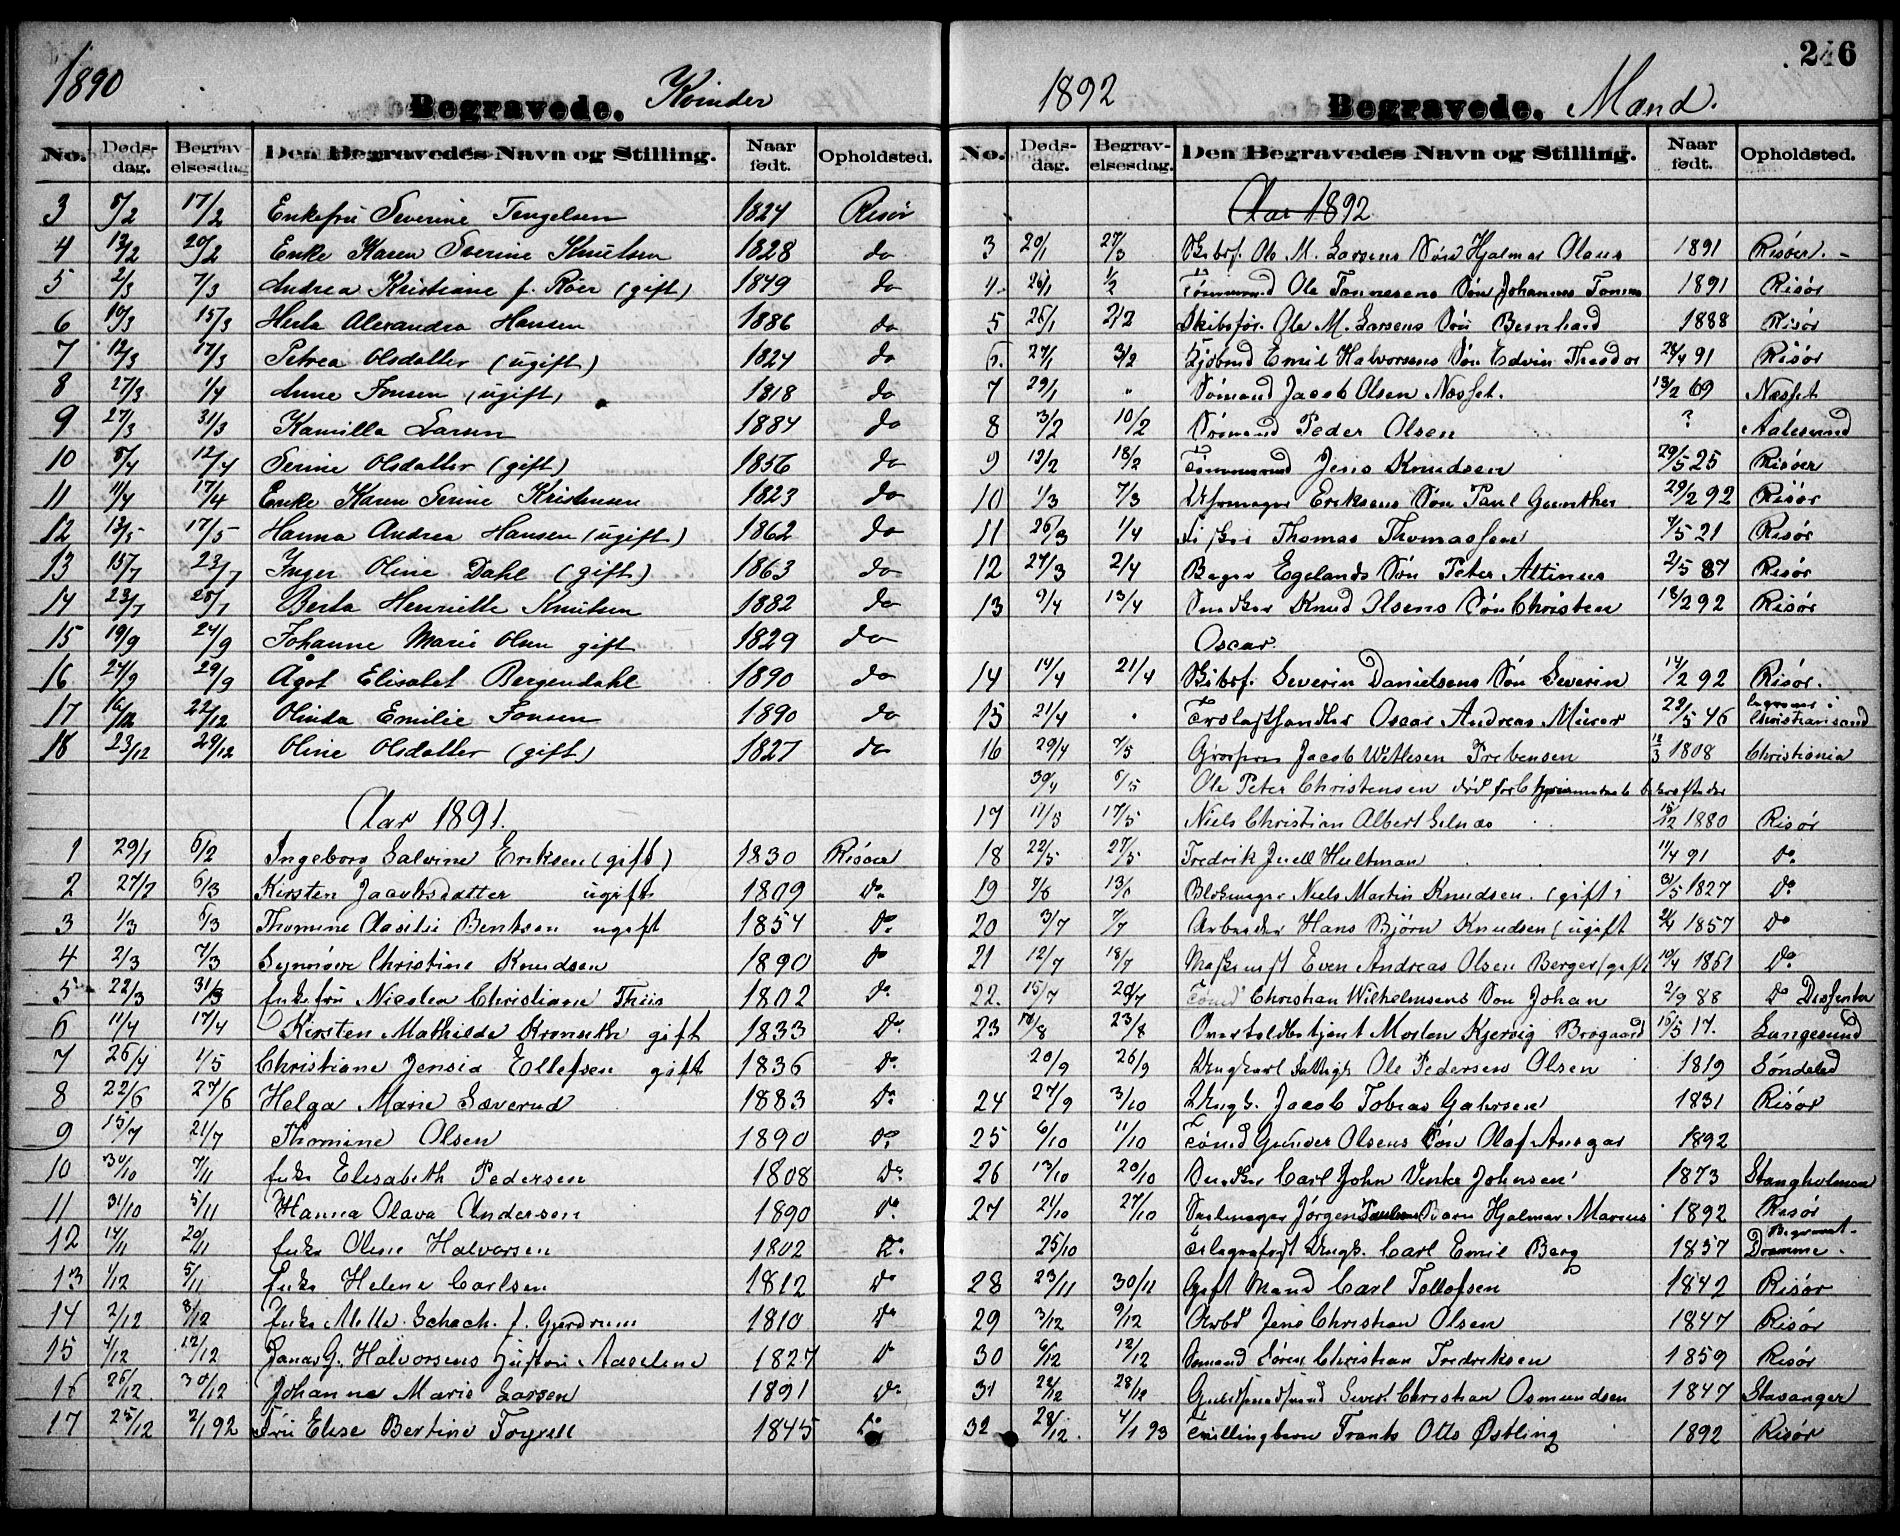 1890 Begravede. Kvinder
No. Døds-dag. Begrav-elsesdag Den Begravedes Navn og Stilling. Naar født. Opholdsted.
3 8/2 17/2 Enkefru Severine Tengelsen 1824 Risør
4 13/2 20/2 Enke Karen Severine Knutsen 1828 do
5 2/3 7/3 Andrea Kristiane f. Röer (gift) 1849 do
6 10/3 15/3 Herla Alexandra Hansen 1886 do
7 12/3 17/3 Petrea Olsdatter (ugift) 1824 do
8 27/3 1/4 Anne Jonsen (ugift) 1818 do
9 27/3 31/3 Kamilla Larsen 1884 do
10 8/4 12/4 Serine Olsdatter (gift) 1856 do
11 11/4 17/4 Enke Karen Serine Kristensen 1823 do
12 13/5 17/5 Hanna Andrea Hansen (ugift) 1862 do
13 15/7 23/7 Inger Oline Dahl (gift) 1863 do
14 23/7 28/7 Berta Henriette Knutsen 1882 do
15 19/9 24/9 Johanne Marie Olsen gift 1829 do
16 24/9 29/9 Ågot Elisabet Bergendahl 1890 do
17 16/12 22/12 Olinda Emilie Jonsen 1890 do
18 23/12 29/12 Oline Olsdatter (gift) 1827 do
Aar 1891.
1 29/1 6/2 Ingeborg Salvine Eriksen (gift) 1830 Risøer
2 27/2 6/3 Kirsten Jacobsdatter ugift 1809 Do
3 1/3 6/3 Thomine Aasilie Bentsen ugift 1854 Do
4 2/3 7/3 Synnöve Christine Knudsen 1890 Do
5 22/3 31/3 Enkefru Nicolea Christiane Thiis 1802 Do
6 11/4 17/4 Kirsten Mathilde gift 1833 Do
7 26/4 1/5 Christiane Jensia Ellefsen gift 1836 Do
8 22/6 27/6 Helga Marie Sæverud 1883 Do
9 15/7 21/7 Thomine Olsen 1890 Do
10 30/10 7/11 Enke Elisabeth Pedersen 1808 Do
11 31/10 5/11 Hanna Olava Andersen 1890 Do
12 14/11 20/11 Enke Olene Halvorsen 1802 Do
13 1/12 5/11 Enke Helene Carlsen 1812 Do
14 2/12 8/12 Enke Mette Schach f. Gjerdrum 1810 Do
15 4/12 12/12 Janas G. Halvorsens Hustru Aaselene 1827 Do
16 26/12 30/12 Johanne Marie Larsen 1891 Do
17 25/12 2/1 92 Fru Elise Bertine 1845 Do
1892 Begravede. Mænd. 246
No. Døds-dag. Begrav-elsesdag. Den Begravedes Navn og Stilling. Naar født. Opholdsted.
Aar 1892
3 20/1 27/3 Skibsf. Ole M. Larsens Søn Hjalmar Olaus 1891 Risøer.
4 26/1 1/2 Tömmermand Ole Tønnesens Søn Johannes Tønnes 1891 Risør
5 26/1 2/2 Skibsför. Ole M. Larsens Søn Bernhard 1888 Risør
6. 27/1 3/2 Kjøbmd Emil Halvorsens Søn Edvin Theodor 28/4 91 Risør
7 29/1 " Sömand Jacob Olsen Næsset. 13/2 69 Næsset
8 3/2 10/2 Sømand Peder Olsen ? Aalesund
9 12/2 18/2 Tømmermd Jens Knudsen 29/5 25 Risøer
10 1/3 7/3 Uhrmager Eriksens Søn Paul Gunther 29/2 92 Risør
11 26/3 1/4 Thomas Thomassen 7/5 21 Risør
12 27/3 2/4 Bager Egelands Søn Peter Altinius 2/5 87 Risør
13 9/4 13/4 Snedker Knud Olsens Søn Christen 18/2 92 Risør
Oscar.
14 14/4 21/4 Skibsf. Severin Danielsens Søn Severin 14/2 92 Risør.
15 21/4 " Trelasthandler Oscar Andreas Mürer 23/5 46 Begravet i Christiansand
16 29/4 7/5 Grosserer Jacob Wetlesen Prebensen 12/3 1808 Christiania
30/4 6/5 Ole Peter Christensen død
17 11/5 17/5 Niels Christian Albert Selnæs 15/12 1880 Risør
18 22/5 27/5 Fredrik Juell Hultman 11/4 91 Do
19 7/6 13/6 Blokmager Niels Martin Knudsen. (gift) 31/5 1827 Do
20 3/7 7/7 Arbeider Hans Björn Knudsen (ugift 2/4 1857 Do
21 12/7 18/7 Maskinist Even Andreas Olsen Berger (gift 10/4 1861 Do
22. 15/7 20/7 Tömd Christian Wilhelmsens Søn Johan 2/9 88 Do Dissenter
23 18/8 23/8 Overtoldbetjent Morten Kjervig Brogaard 15/5 17. Langesund
20/9 26/9 Ungkarl Ole Pedersen Olsen 1819 Söndeled
24 27/9 3/10 Ungk. Jacob Tobias Gahrsen 1831 Risør
25 6/10 11/10 Tömd Gunder Olsens Søn Olaf Ansgar 1892
26 13/10 20/10 Snedker Carl John Venke Johnsen 1873 Stangholmen
27 21/10 27/10 Seilmager Jörgen Paulsens Barn Hjalmar Marius 1892 Risør
25/10 Telegrafist Ungk. Carl Emil Berg 1857 Begravet Dramme.
28 23/11 30/11 Gift Mand Carl Tollefsen 1842 Risør
29 3/12 9/12 Arbd Jens Christian Olsen 1847 Risør
30 6/12 12/12 Sømand Søren Christian Fredriksen 1859 Risør
31 22/12 28/12 Guldsmed Sivert Christian Osmundsen 1847 Stavanger
32 28/12. 4/1 93 Tvillingbarn Frants Otto Østling 1892 Risør